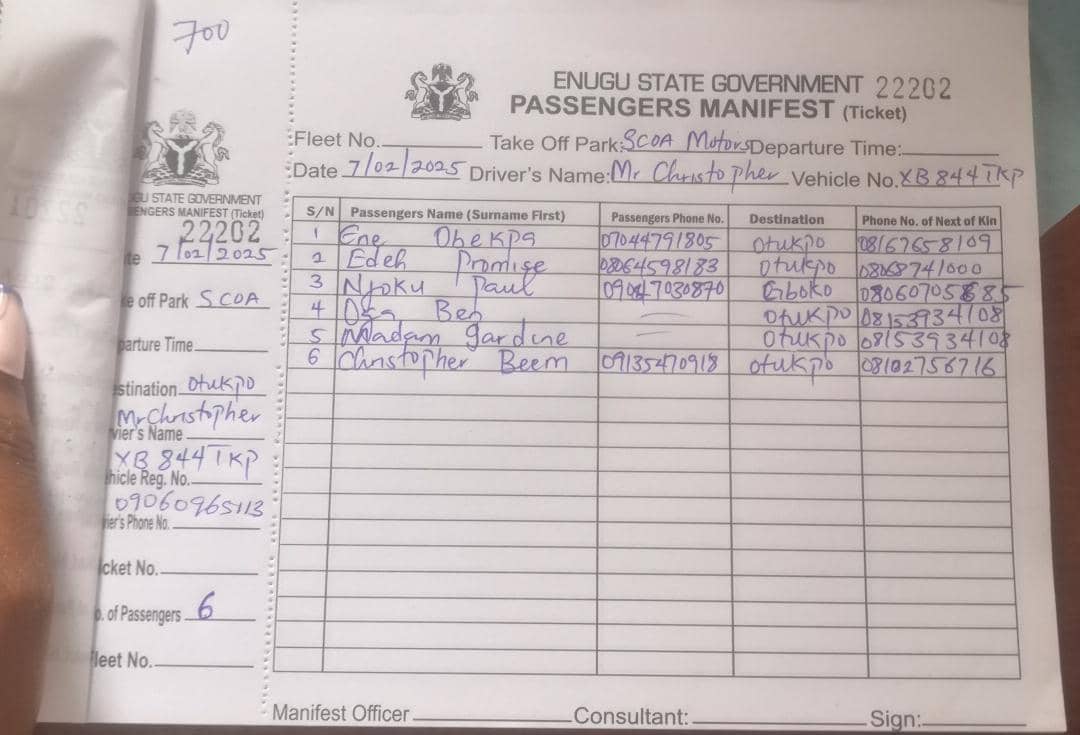 700
GU STATE GOVERNMENT
ENGERS MANIFEST (Ticket)
22202
te 7/02/2025
e off Park SCOA
parture Time
stination Otukpo
Mr Christopher
vier's Name
XB 844 TKP
hicle Reg. No.
09060965113
ier's Phone No.
cket No.
o. of Passengers 6
leet No.
ENUGU STATE GOVERNMENT 22202
PASSENGERS MANIFEST (Ticket)
Fleet No. Take Off Park: SCOA Motors Departure Time:
Date 7/02/2025 Driver's Name: Mr Christopher Vehicle No. XB 844 TKP
S/N Passengers Name (Surname First) Passengers Phone No. Destination Phone No. of Next of Kin
1 Ene Obekpa 07044791805 Otukpo 08167658109
2 Edeh Promise 08064598183 Otukpo 08068741000
3 Njoku Paul 09047030870 Gboko
4 Oga Ben — Otukpo 08153934108
5 Madam Gardine — Otukpo 08153934108
6 Christopher Beem 09135470918 Otukpo 08102756716
Manifest Officer Consultant: Sign: